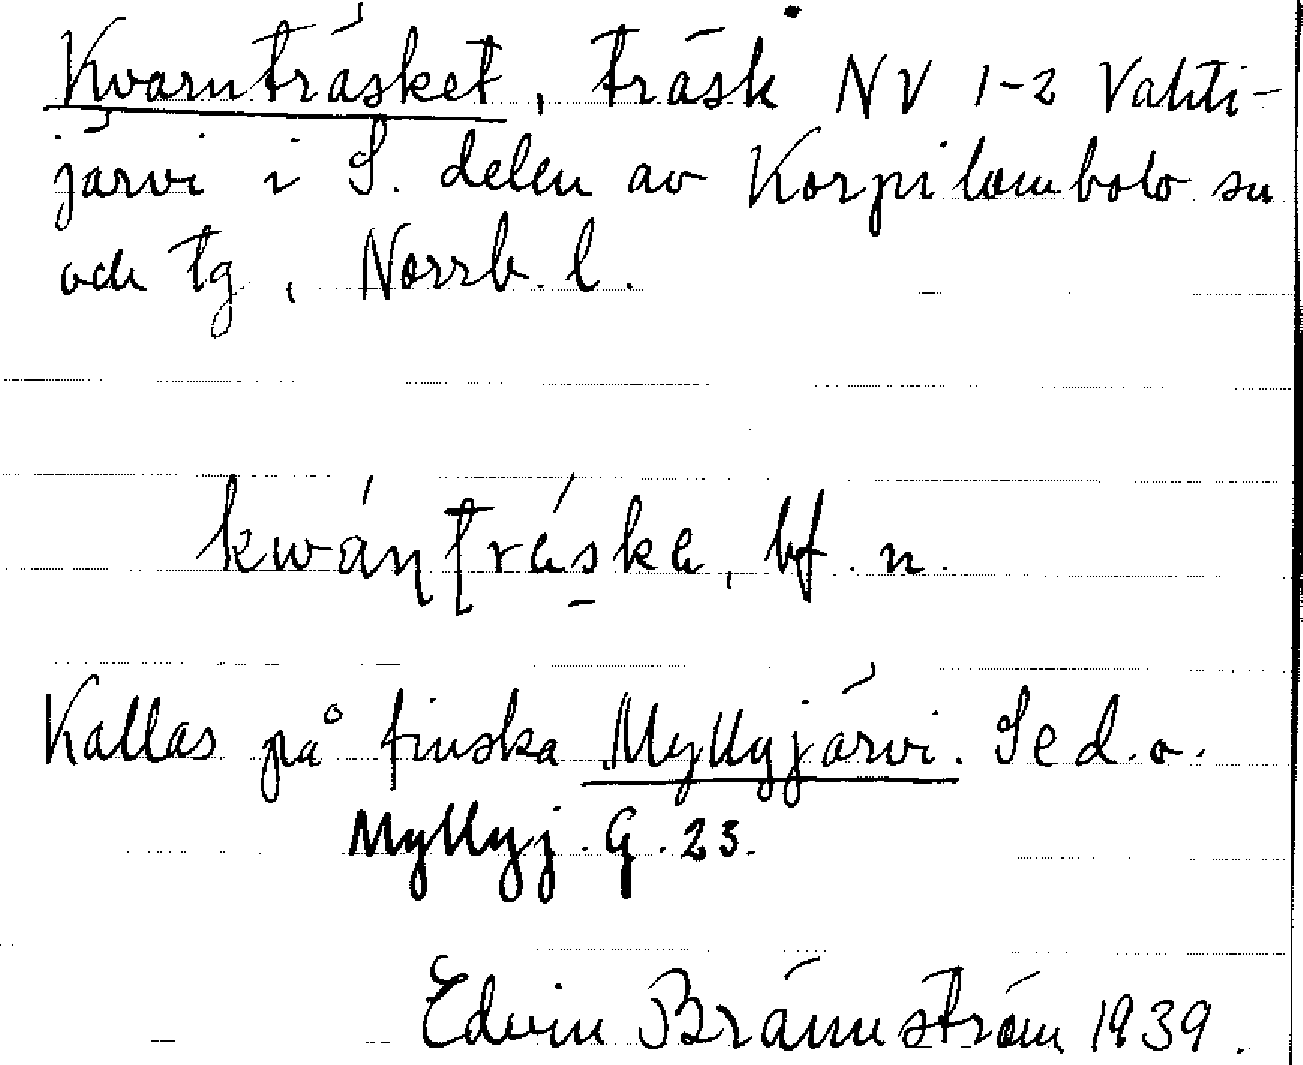 Kvarnträsket, träsk NV 1-2 Vahti-
järvi i S. delen av Korpilombolo sn
och tg, Norrb. l.
kwán̥trǽske, bf. n.
Kallas på finska Myllyjärvi. Se d. o.
Myllyj. G. 23.
Edvin Brännström 1939.